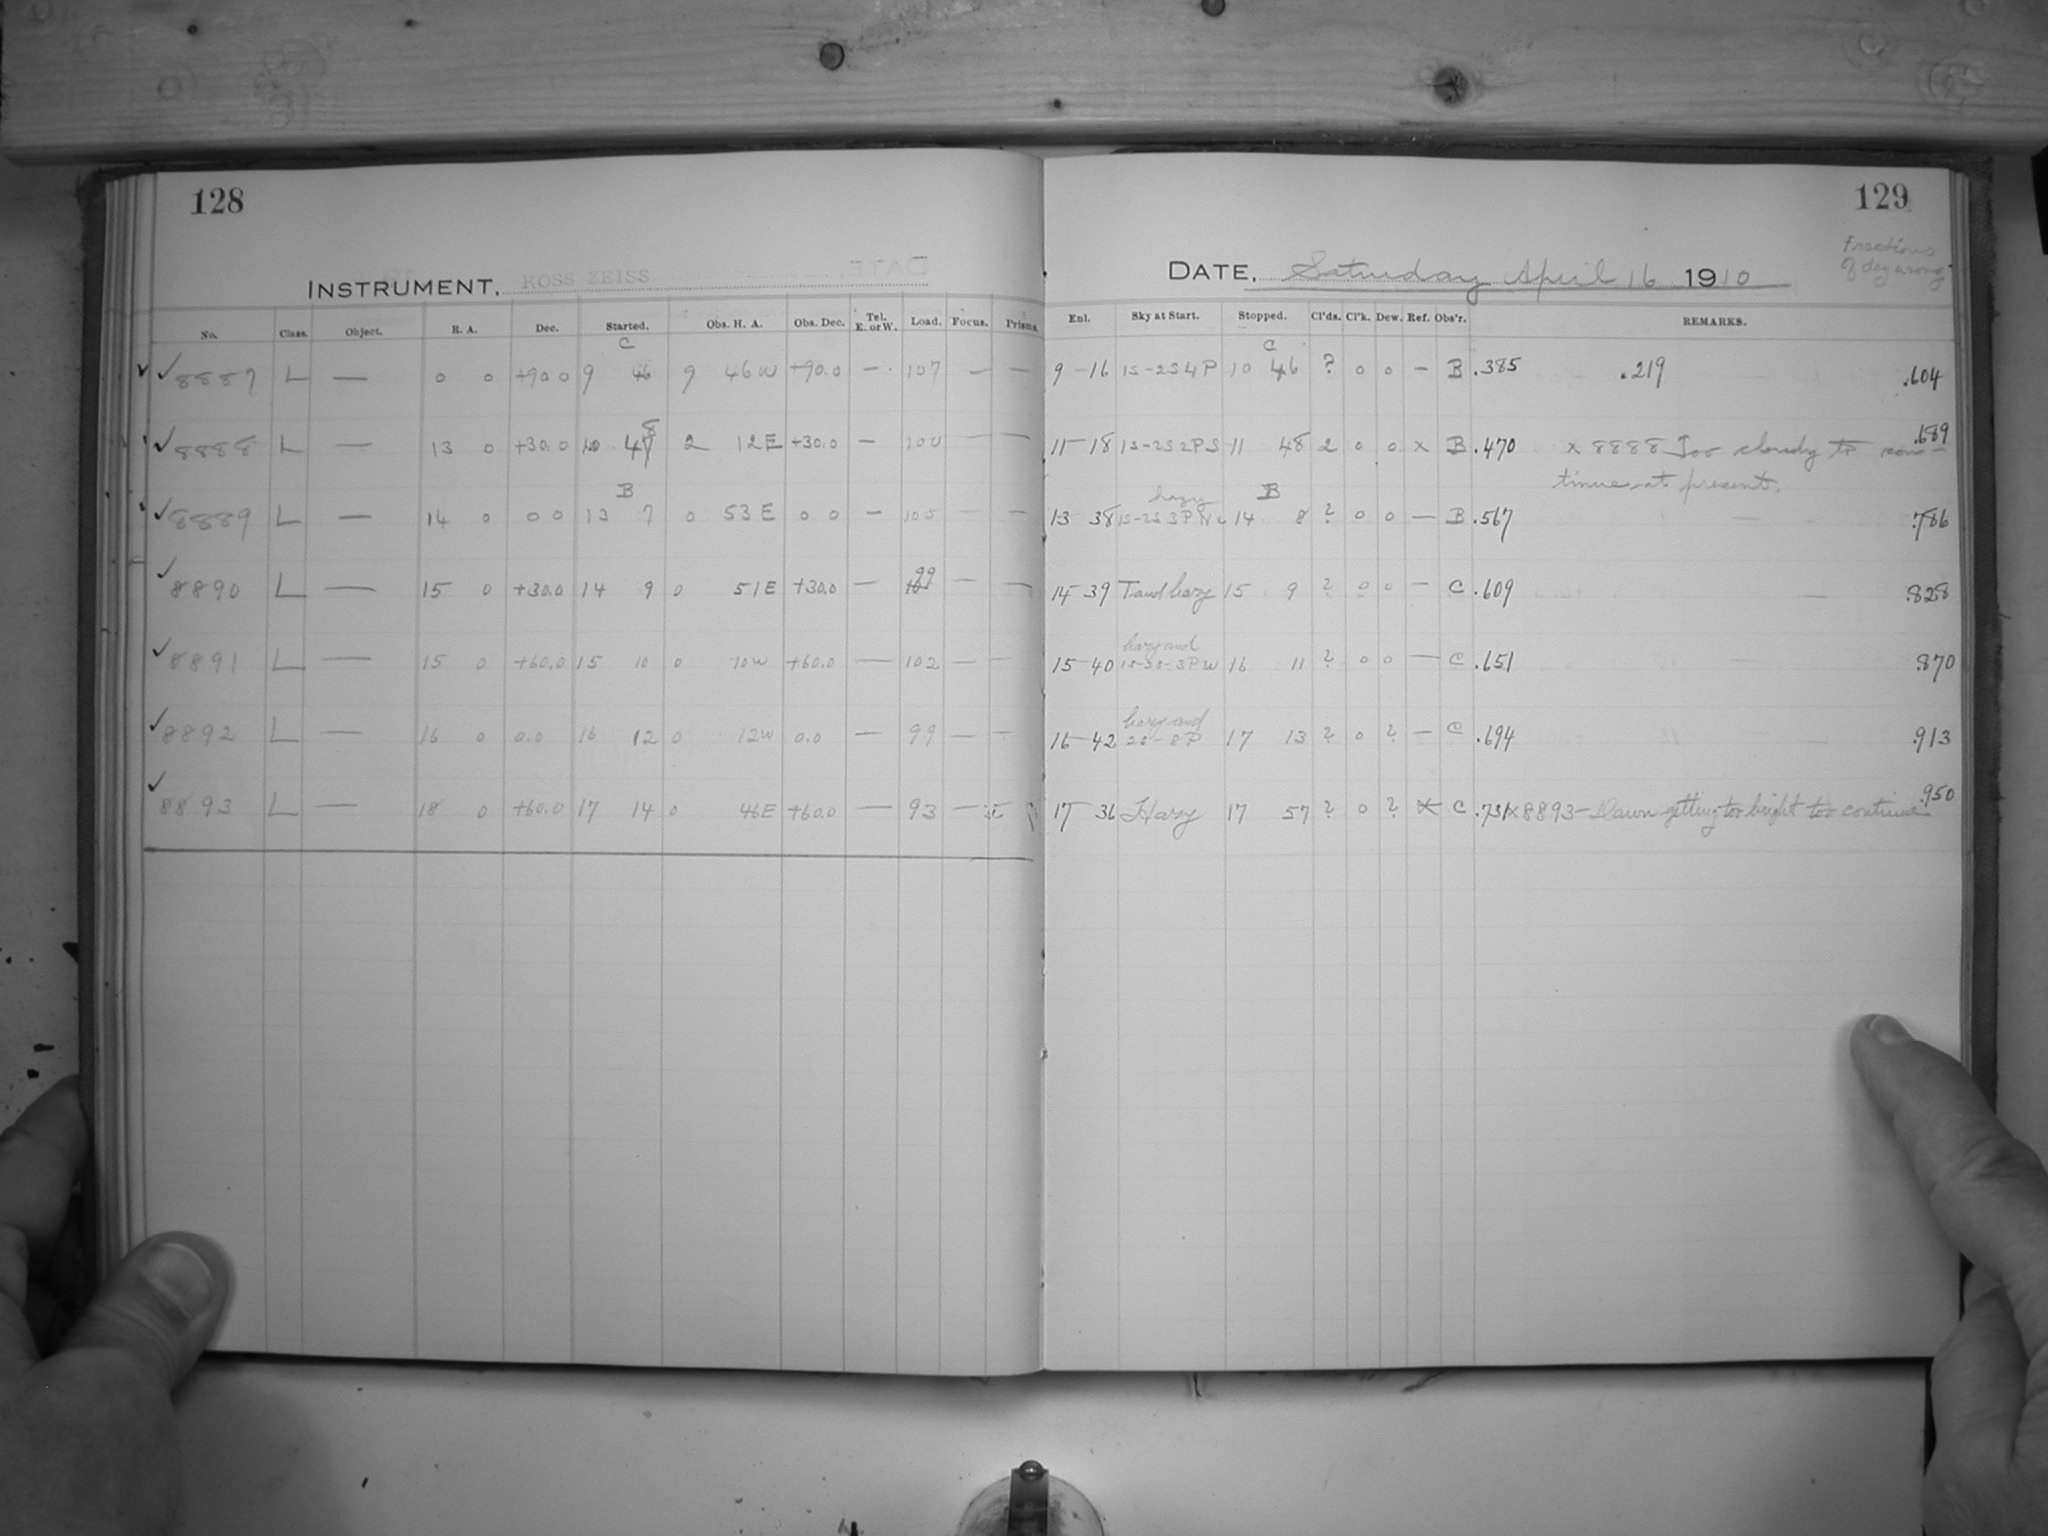 128
INSTRUMENT, ROSS ZEISS
No. Class. Object. R. A. Dec. Started. Obs. H. A. Obs. Dec. Tel. E. or W. Load. Focus. Prisms.
C
✓ ✓ 8887 L — 0 0 +90.0 9 46 9 46 W +90.0 — 107 — —
✓ 8888 L — 13 0 +30.0 10 48 2 12 E +30.0 — 100 — —
B
✓ 8889 L — 14 0 0 0 13 7 0 53 E 0 0 — 105 — —
✓ 8890 L — 15 0 +30.0 14 9 0 51 E +30.0 — 99 — —
✓ 8891 L — 15 0 +60.0 15 10 0 10 W +60.0 — 102 — —
✓ 8892 L — 16 0 0.0 16 12 0 12 W 0.0 — 99 — —
✓ 8893 L — 18 0 +60.0 17 14 0 46 E +60.0 — 93 —
129
Fractions
of day wrong
DATE, Saturday April 16 1910
Enl. Sky at Start. Stopped. Cl'ds. Cl'k. Dew. Ref. Obs'r. REMARKS.
C
9 -16 1S-2S4P 10 46 ? 0 0 — B .385 .219 .604
11-18 1S-2S2PS 11 48 2 0 0 x B .470 x 8888 Too cloudy to con- .689
tinue at present.
hazy B
13 38 1S-2S3P 14 8 ? 0 0 — B .567 .786
14-39 T and hazy 15 9 ? 0 0 — C .609 — .828
hazy and
15-40 1S-2S-3PW 16 11 ? 0 0 — C .651 .870
hazy and
16-42 2S-8P 17 13 ? 0 ? — C .694 .913
17 36 Hazy 17 57 ? 0 ? x C .731 x 8893 — Dawn getting too bright too continue .950